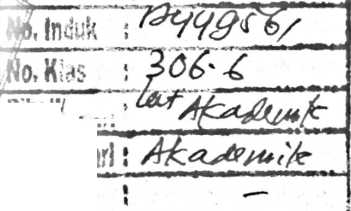 No. Induk : A449561
No. Klas : 306.6
Akademik
: Akademik
: -